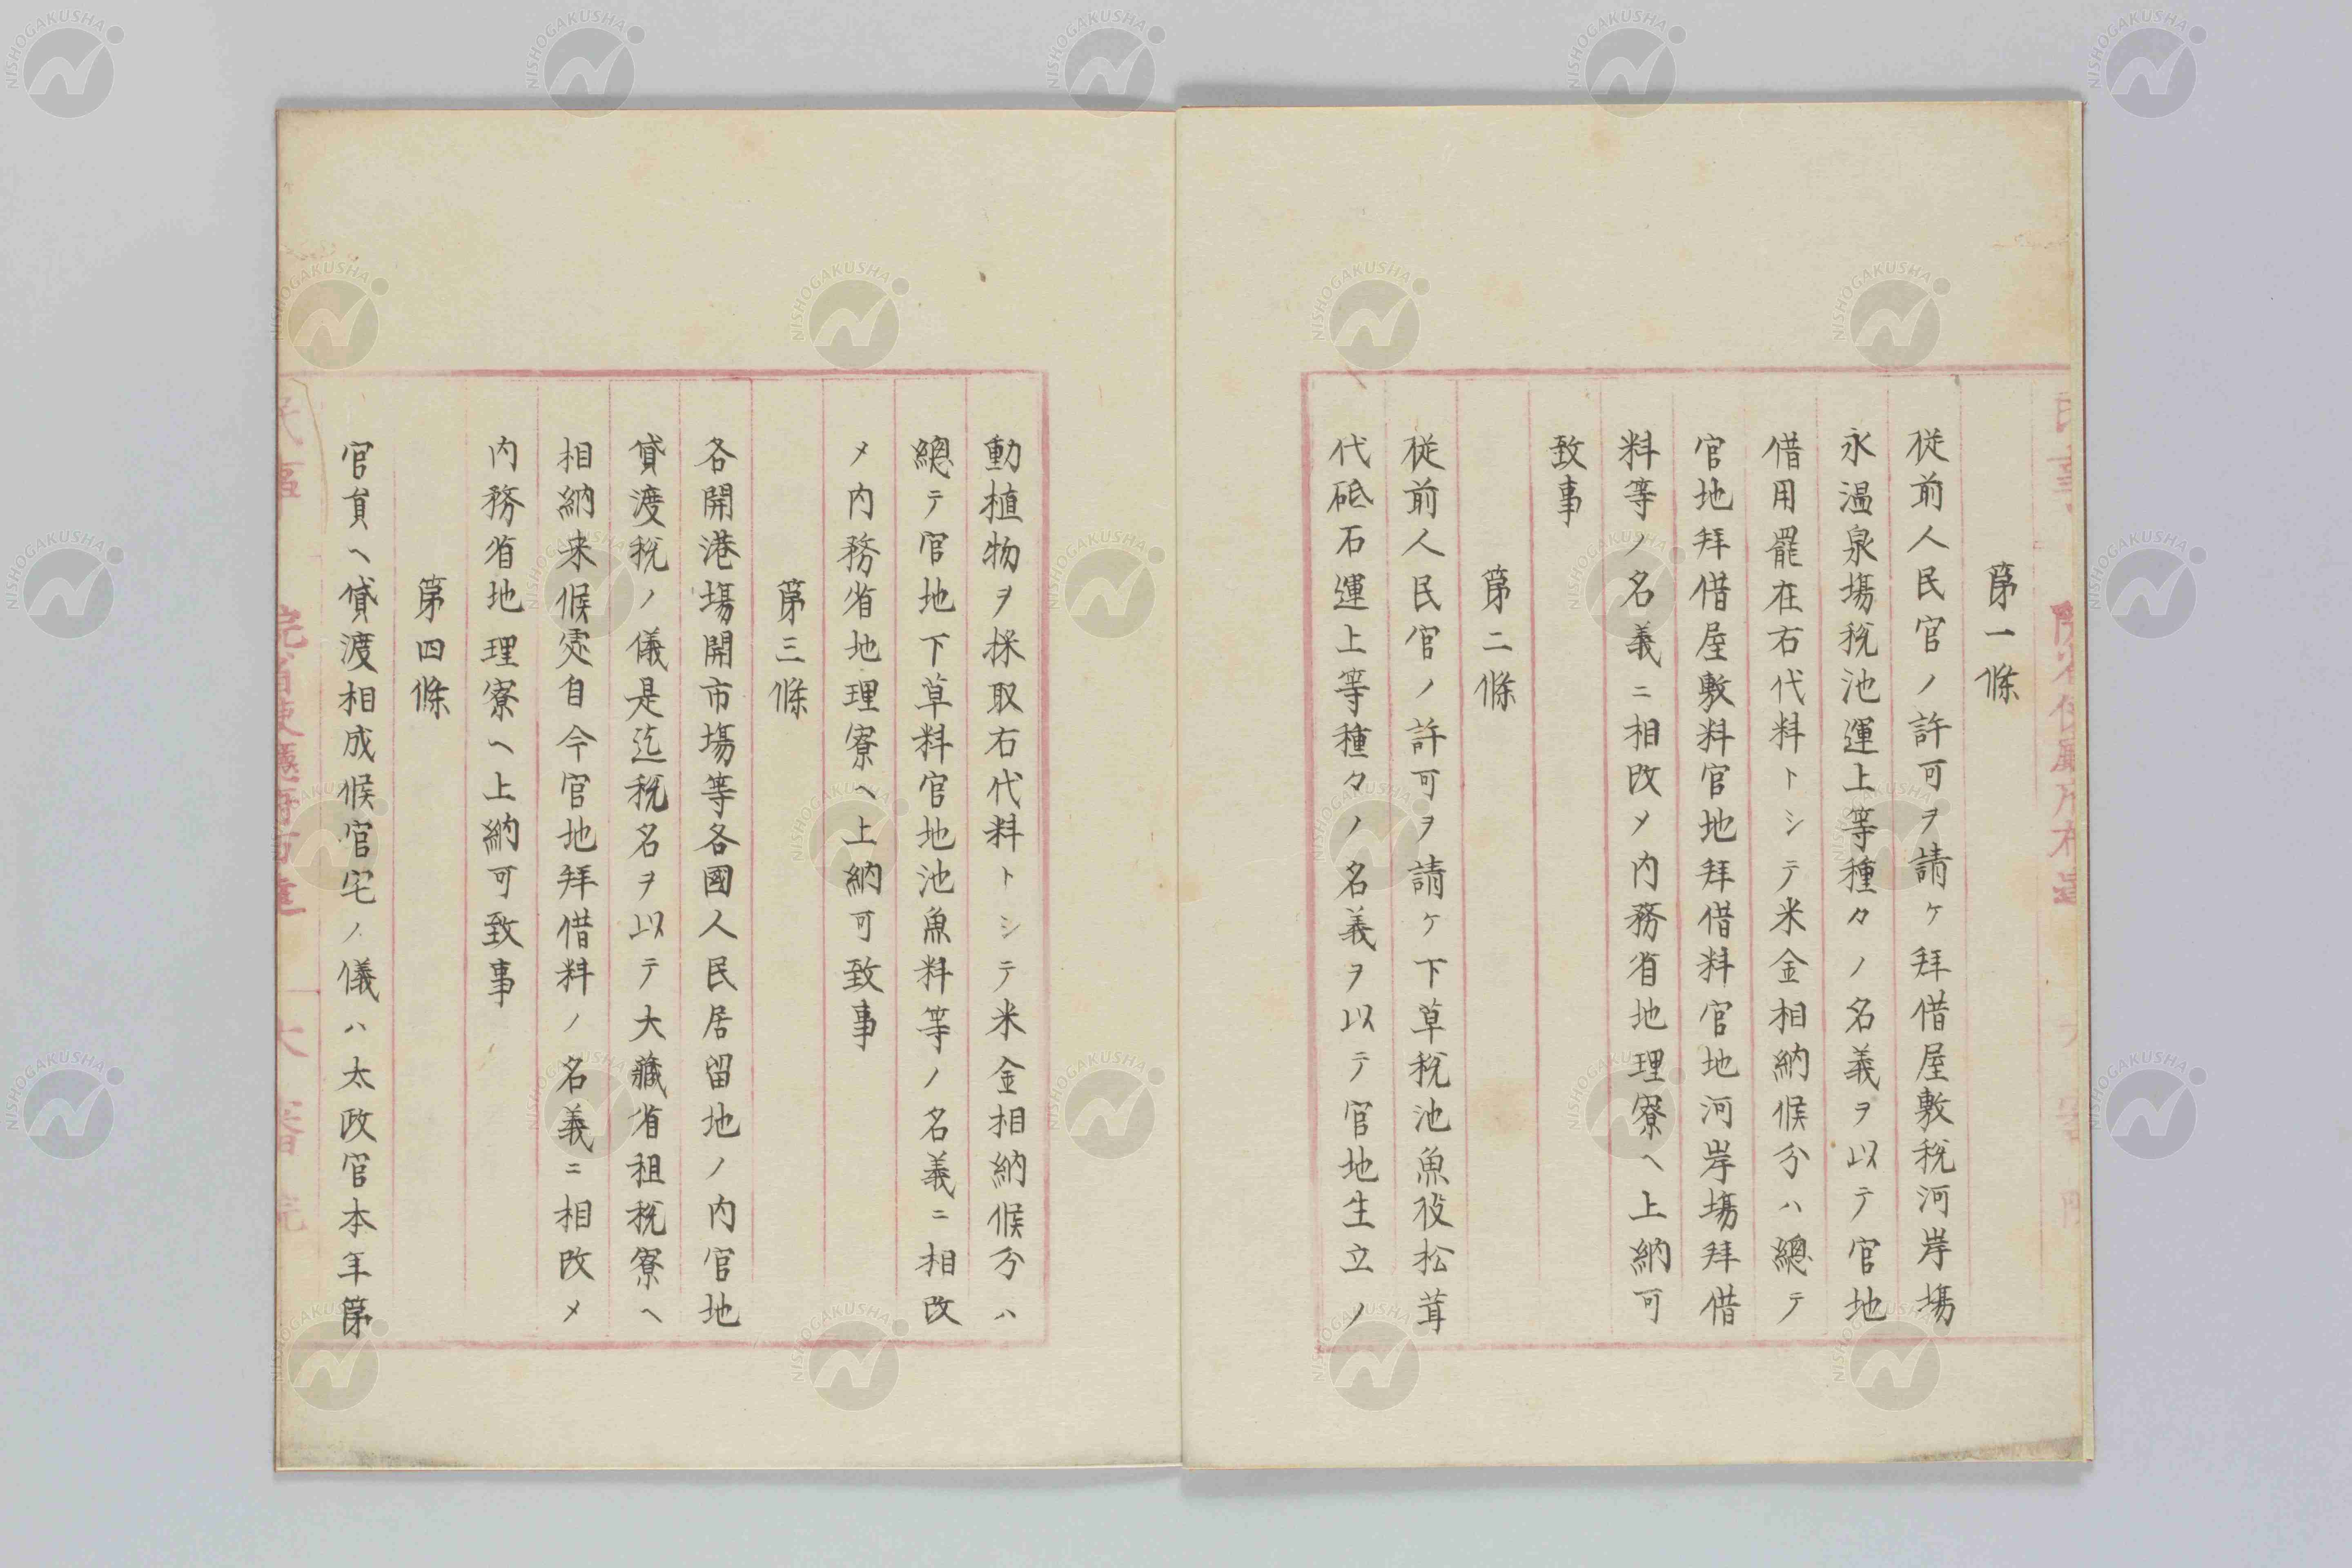 第一條
從前人民官ノ許可ヲ請ケ拜借屋敷税河岸塲
永温泉塲税池運上等種々ノ名義ヲ以テ官地
借用罷在右代料トシテ米金相納候分ハ總テ
官地拜借屋敷料官地拜借料官地河岸塲拜借
料等ノ名義ニ相改メ内務省地理寮ヘ上納可
致事
第二條
從前人民官ノ許可ヲ請ケ下草税池魚役松茸
代砥石運上等種々ノ名義ヲ以テ官地生立ノ
動植物ヲ採取右代料トシテ米金相納候分ハ
總テ官地下草料官地池魚料等ノ名義ニ相改
メ内務省地理寮ヘ上納可致事
第三條
各開港塲開市塲等各國人民居留地ノ内官地
貸渡税ノ儀是迄税名ヲ以テ大藏省租税寮ヘ
相納来候處自今官地拜借料ノ名義ニ相改メ
内務省地理寮ヘ上納可致事
第四條
官員ヘ貸渡相成候官宅ノ儀ハ太政官本年第
NISHOGAKUSHA